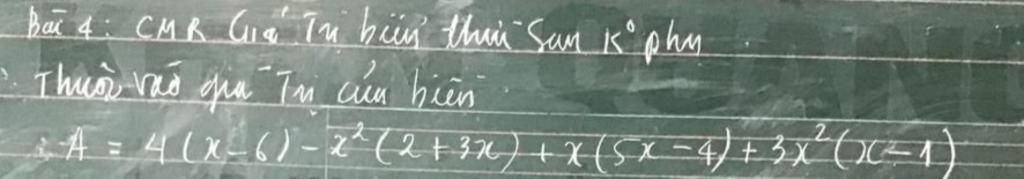 Bài 4: CMR Giá Trị biểu thức Sau K° phụ
Thuộc vào giá Trị của biến
A = 4(x-6) - x²(2+3x) + x(5x-4) + 3x²(x-1)